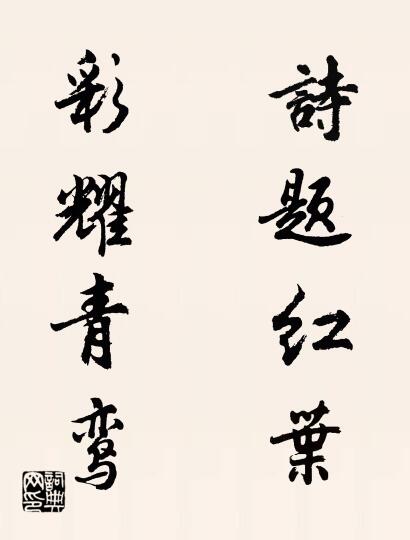 詩题红葉
彩耀青鸾
詞典网印